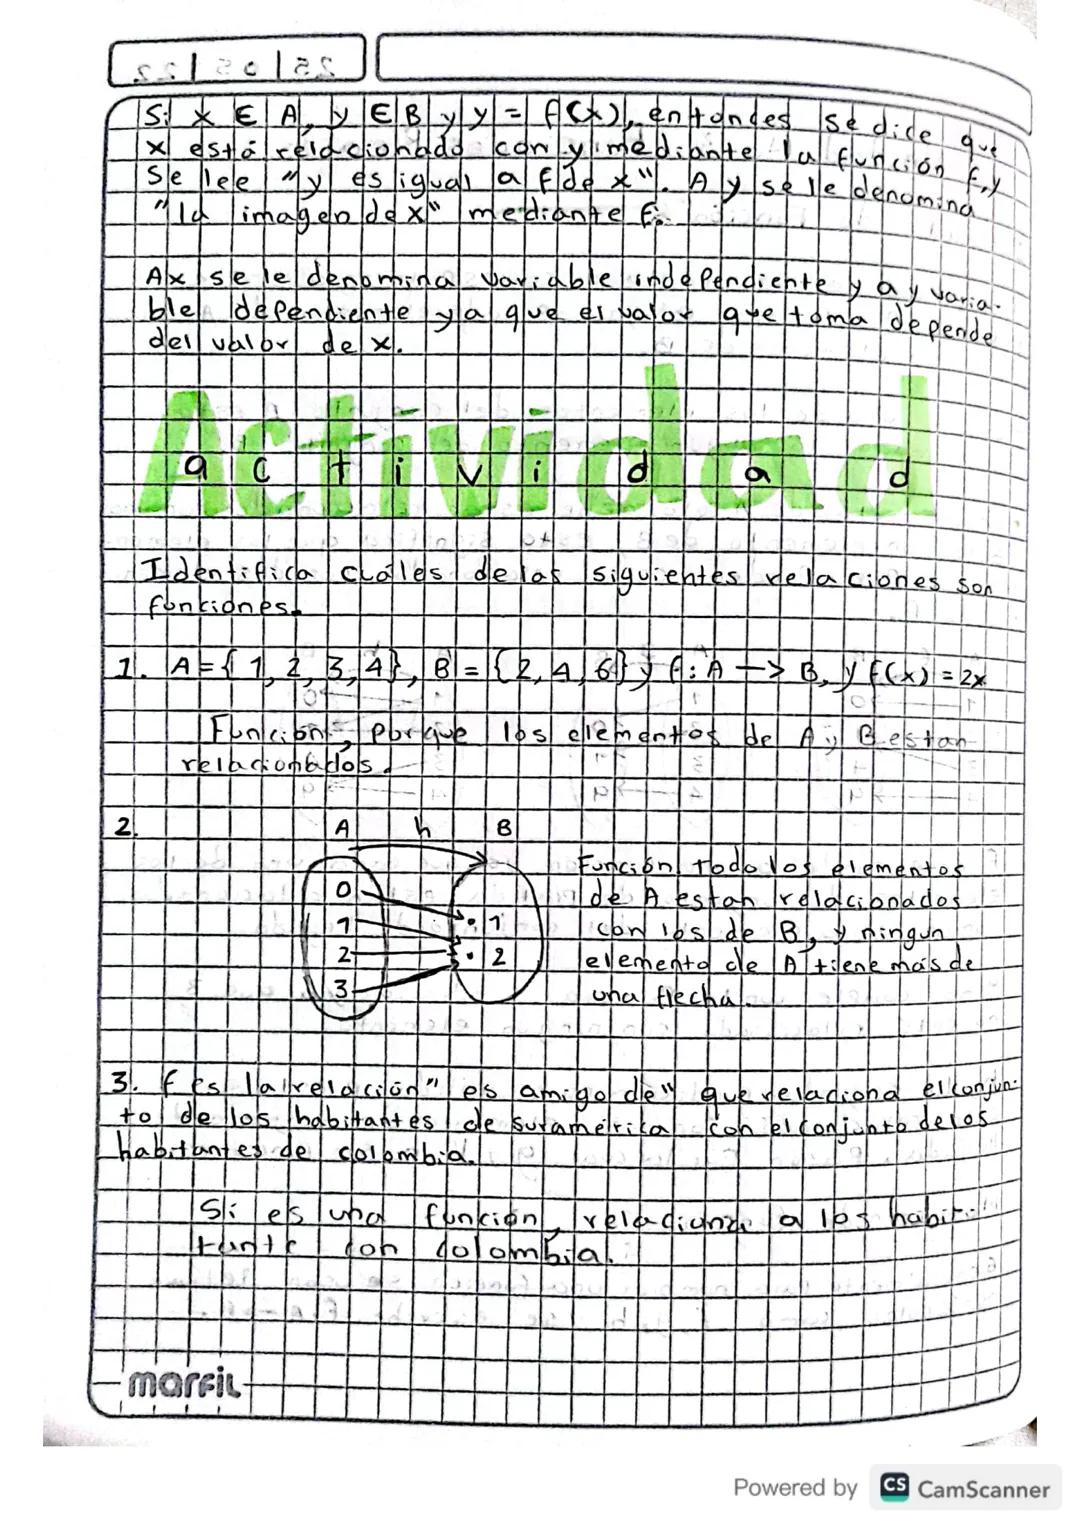 Si x ∈ A, y ∈ B y y = f(x), entonces se dice que
x está relacionado con y mediante la función f, y
se lee "y es igual a f de x". A y se le denomina
"la imagen de x" mediante f.
A x se le denomina variable independiente y a y varia-
ble dependiente ya que el valor que toma depende
del valor de x.
Actividad
actividad
Identifica cuáles de las siguientes relaciones son
funciones.
1. A = {1, 2, 3, 4}, B = {2, 4, 6} y f: A → B, y f(x) = 2x
Función, porque los elementos de A y B estan
relacionados.
2.
A h B
0
1 1
2 2
3
Función todo los elementos
de A estan relacionados
con los de B, y ningun
elemento de A tiene más de
una flecha.
3. f es la relación "es amigo de" que relaciona el conjun-
to de los habitantes de suramérica con el conjunto de los
habitantes de colombia.
Si es una función, relaciona a los habi
con colombia.
marfil
Powered by CS CamScanner